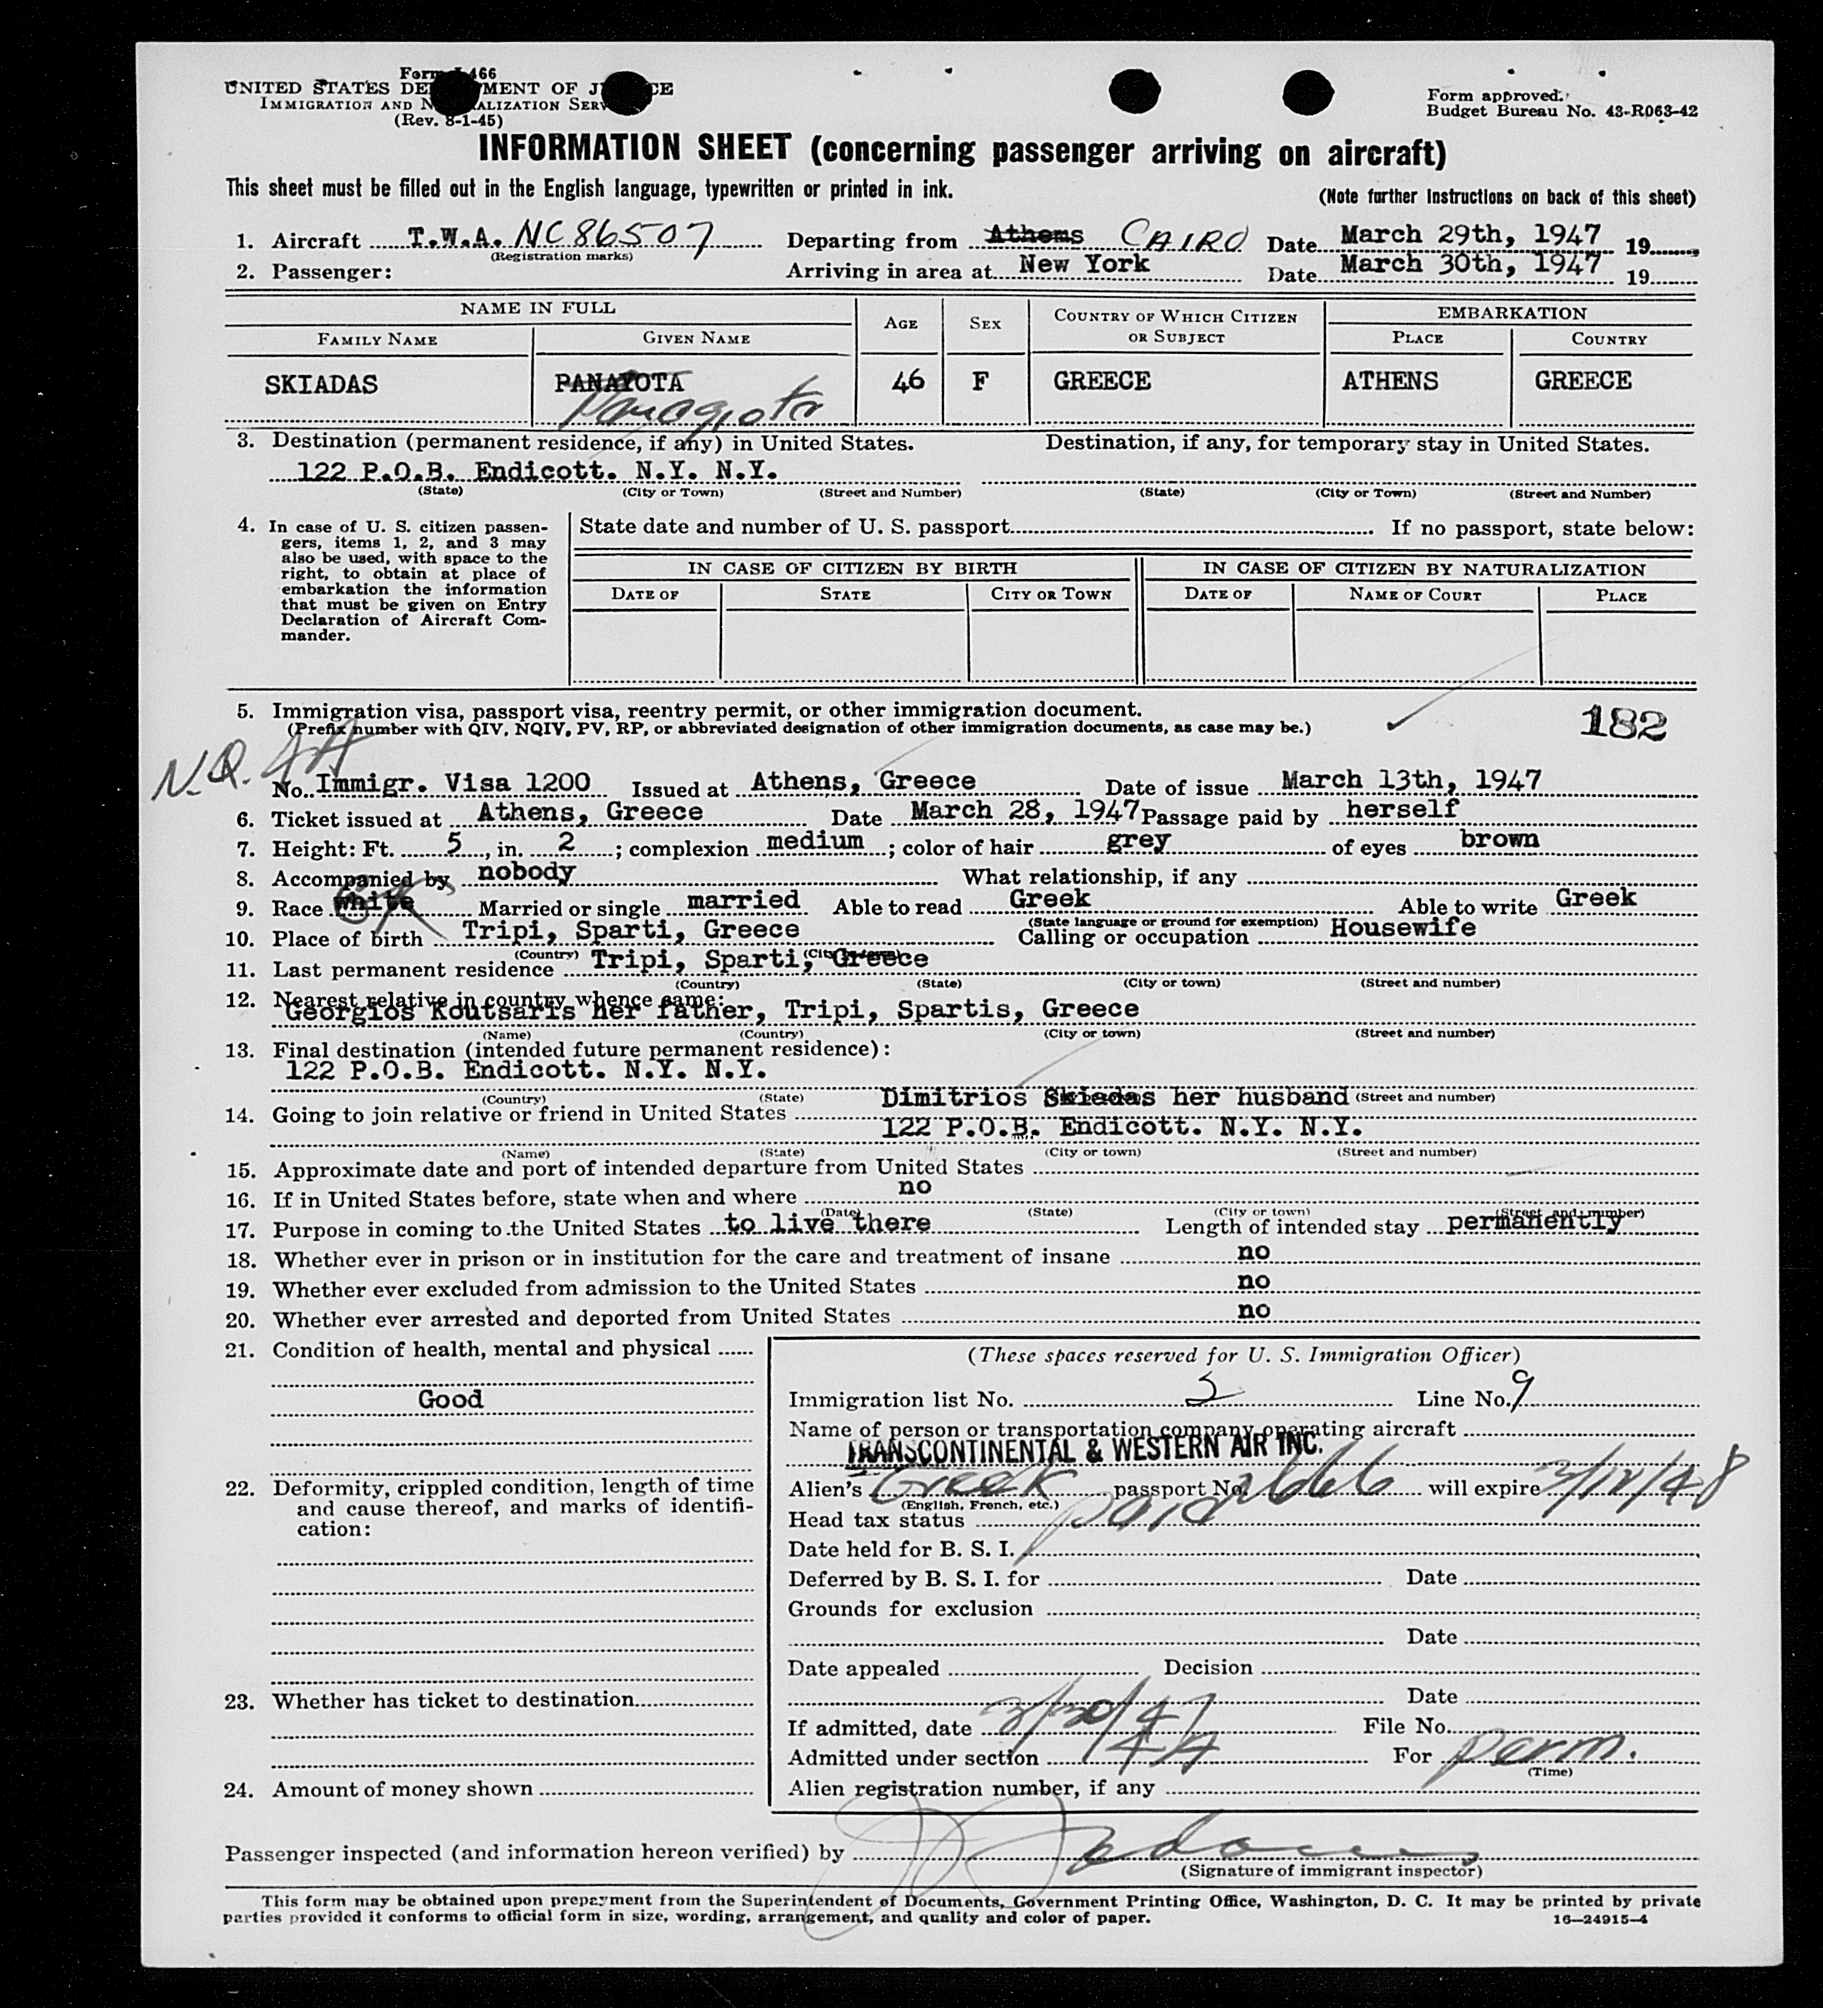 Form I-466
UNITED STATES DEPARTMENT OF JUSTICE
IMMIGRATION AND NATURALIZATION SERVICE
(Rev. 8-1-45)
Form approved.
Budget Bureau No. 43-R063-42
INFORMATION SHEET (concerning passenger arriving on aircraft)
This sheet must be filled out in the English language, typewritten or printed in ink.
(Note further instructions on back of this sheet)
1. Aircraft T.W.A. NC86507 Departing from Athens CAIRO Date March 29th, 1947 19
(Registration marks)
2. Passenger: Arriving in area at New York Date March 30th, 1947 19
NAME IN FULL AGE SEX COUNTRY OF WHICH CITIZEN OR SUBJECT EMBARKATION
FAMILY NAME GIVEN NAME PLACE COUNTRY
SKIADAS PANAYOTA 46 F GREECE ATHENS GREECE
Panagiota
3. Destination (permanent residence, if any) in United States. Destination, if any, for temporary stay in United States.
122 P.O.B. Endicott. N.Y. N.Y.
(State) (City or Town) (Street and Number) (State) (City or Town) (Street and Number)
4. In case of U. S. citizen passengers, items 1, 2, and 3 may also be used, with space to the right, to obtain at place of embarkation the information that must be given on Entry Declaration of Aircraft Commander.
State date and number of U. S. passport If no passport, state below:
IN CASE OF CITIZEN BY BIRTH IN CASE OF CITIZEN BY NATURALIZATION
DATE OF STATE CITY OR TOWN DATE OF NAME OF COURT PLACE
5. Immigration visa, passport visa, reentry permit, or other immigration document.
(Prefix number with QIV, NQIV, PV, RP, or abbreviated designation of other immigration documents, as case may be.)
182
N.Q. 4A
No. Immigr. Visa 1200 Issued at Athens, Greece Date of issue March 13th, 1947
6. Ticket issued at Athens, Greece Date March 28, 1947 Passage paid by herself
7. Height: Ft. 5, in. 2; complexion medium; color of hair grey of eyes brown
8. Accompanied by nobody What relationship, if any
9. Race white GK Married or single married Able to read Greek Able to write Greek
(State language or ground for exemption)
10. Place of birth Tripi, Sparti, Greece Calling or occupation Housewife
(Country) (City or town)
11. Last permanent residence Tripi, Sparti, Greece
(Country) (State) (City or town) (Street and number)
12. Nearest relative in country whence came:
Georgios Koutsaris her father, Tripi, Spartis, Greece
(Name) (Country) (City or town) (Street and number)
13. Final destination (intended future permanent residence):
122 P.O.B. Endicott. N.Y. N.Y.
(Country) (State) (Street and number)
14. Going to join relative or friend in United States Dimitrios Skiadas her husband
122 P.O.B. Endicott. N.Y. N.Y.
(Name) (State) (City or town) (Street and number)
15. Approximate date and port of intended departure from United States
16. If in United States before, state when and where no
(Date) (State) (City or town) (Street and number)
17. Purpose in coming to the United States to live there Length of intended stay permanently
18. Whether ever in prison or in institution for the care and treatment of insane no
19. Whether ever excluded from admission to the United States no
20. Whether ever arrested and deported from United States no
21. Condition of health, mental and physical
Good
22. Deformity, crippled condition, length of time and cause thereof, and marks of identification:
23. Whether has ticket to destination
24. Amount of money shown
(These spaces reserved for U. S. Immigration Officer)
Immigration list No. 5 Line No. 9
Name of person or transportation company operating aircraft
TRANSCONTINENTAL & WESTERN AIR INC.
Alien's Greek passport No. 2666 will expire 3/12/48
(English, French, etc.)
Head tax status paid
Date held for B. S. I.
Deferred by B. S. I. for Date
Grounds for exclusion
Date
Date appealed Decision
Date
If admitted, date 3/30/47 File No.
Admitted under section 4A For perm.
(Time)
Alien registration number, if any
Passenger inspected (and information hereon verified) by
(Signature of immigrant inspector)
This form may be obtained upon prepayment from the Superintendent of Documents, Government Printing Office, Washington, D. C. It may be printed by private
parties provided it conforms to official form in size, wording, arrangement, and quality and color of paper.
16—24915-4